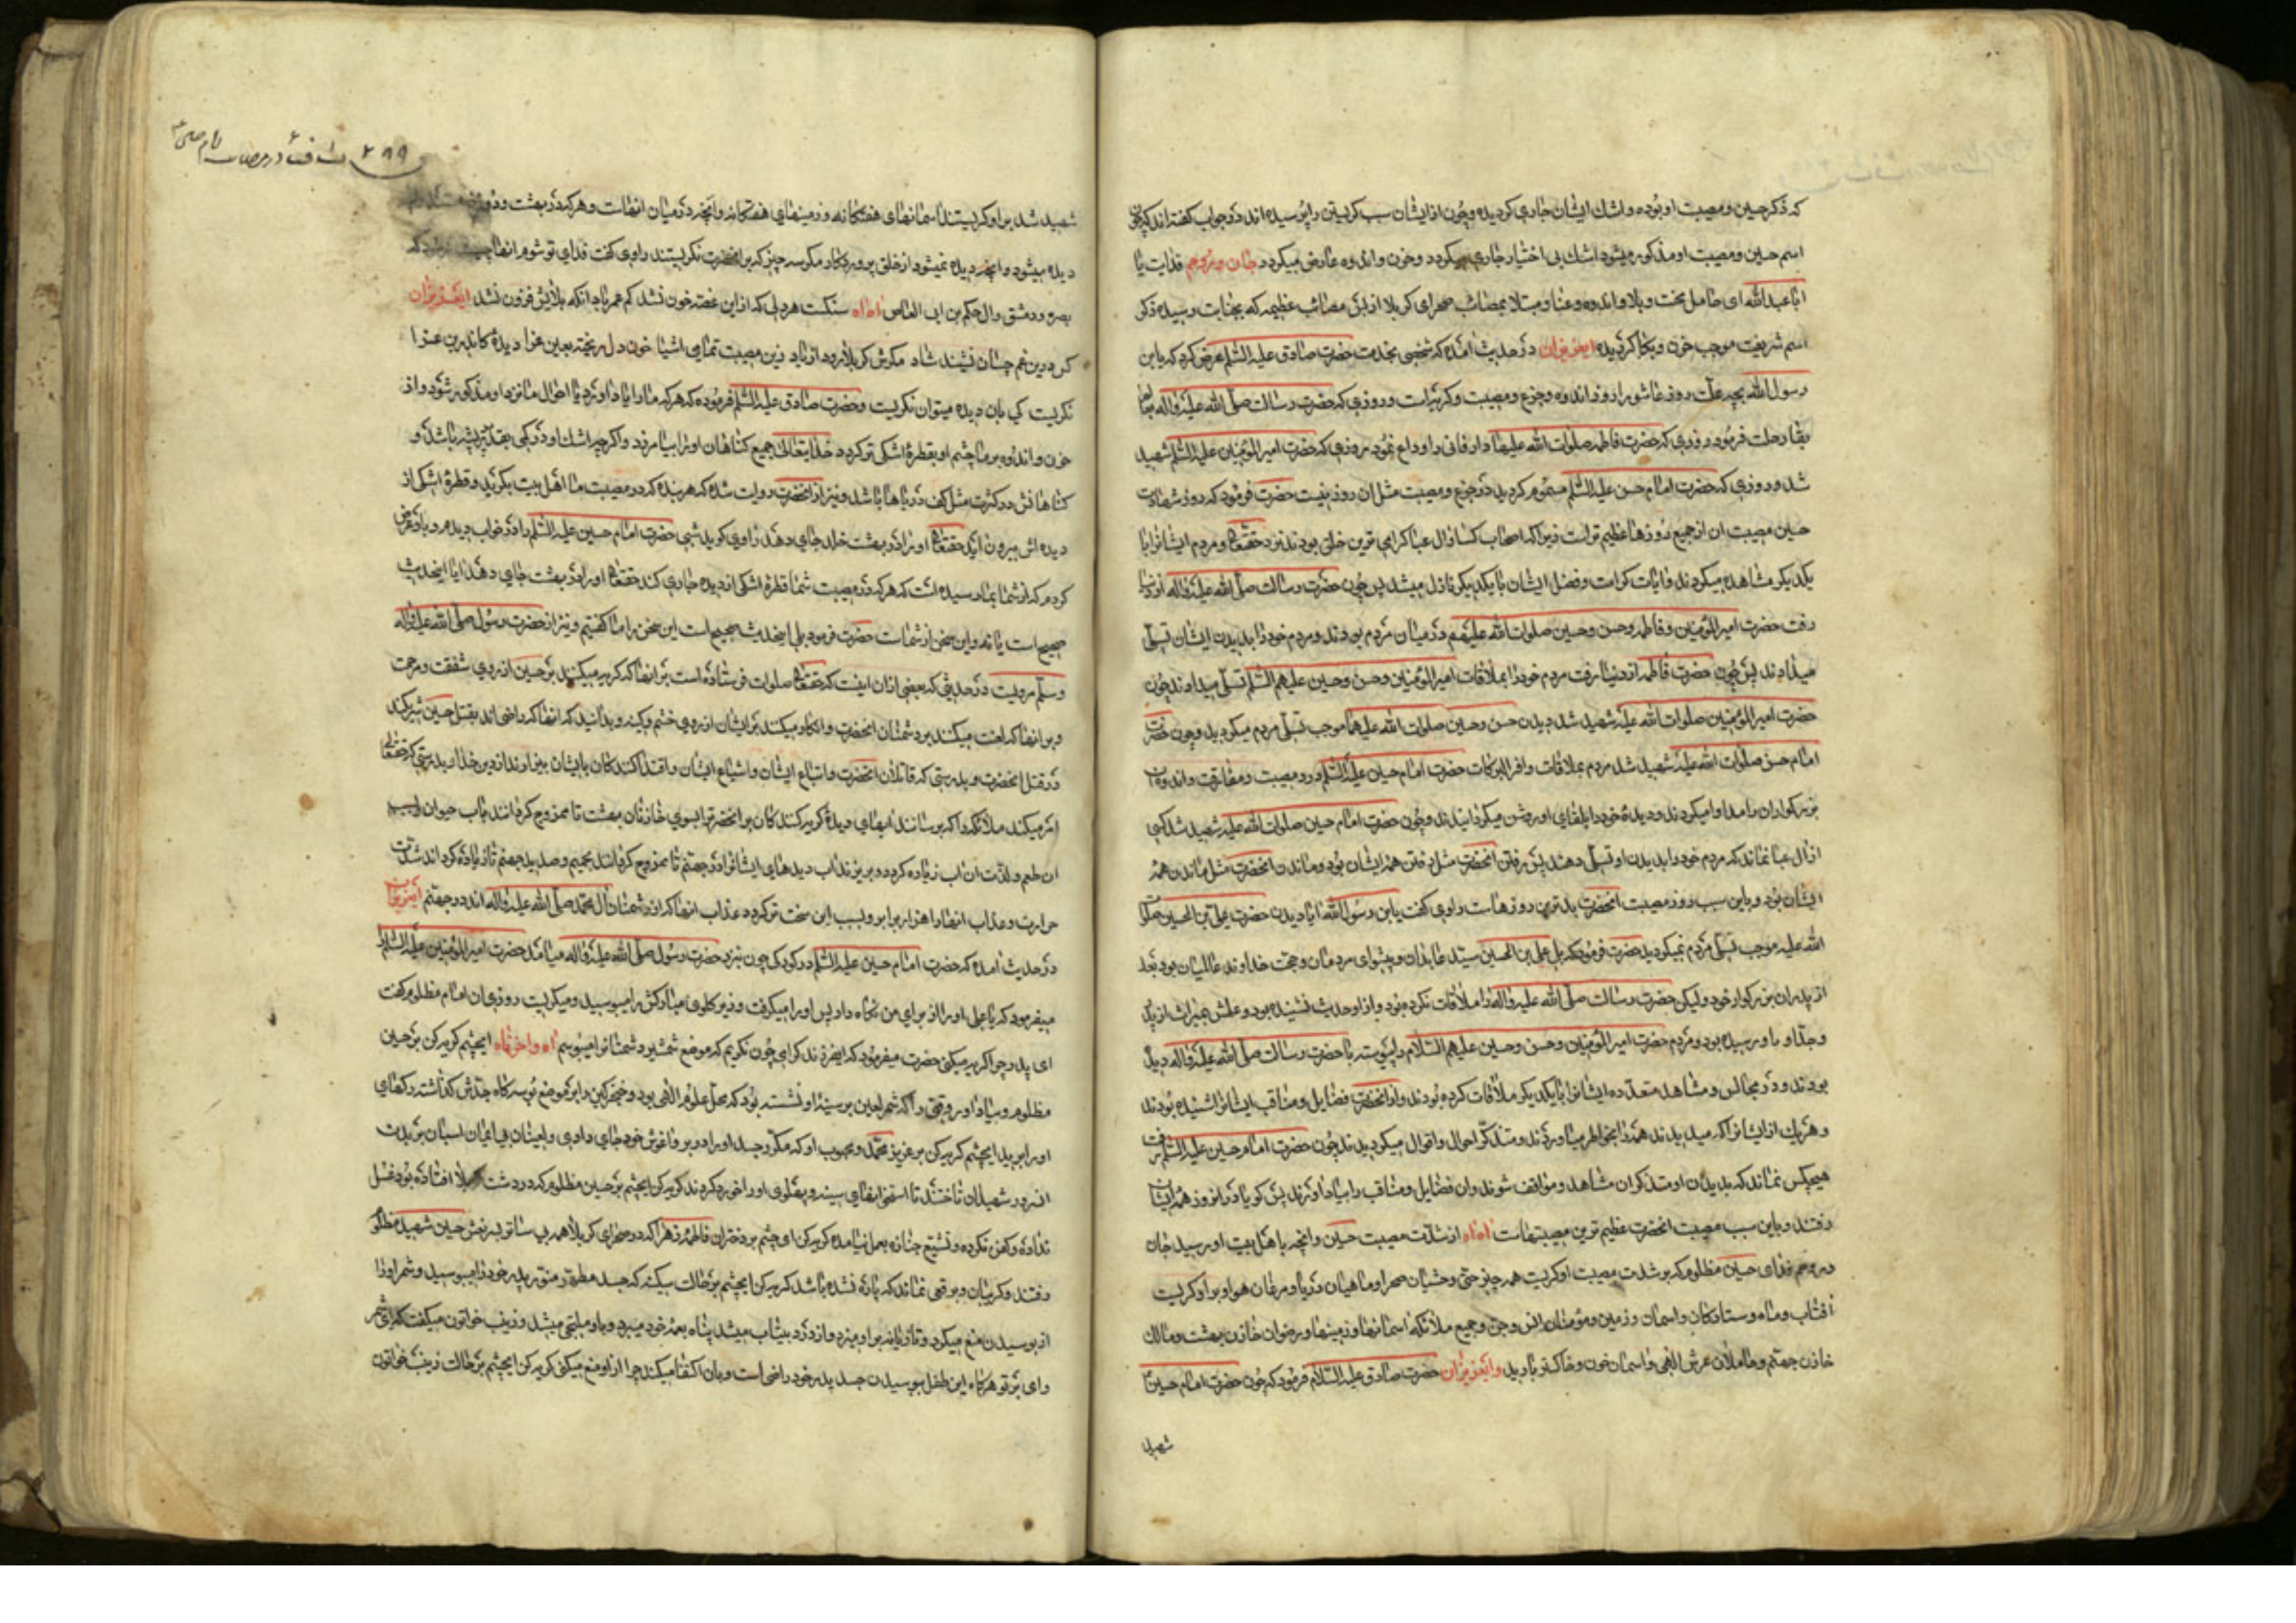 که ذکر حسین و مصیبت او بوده و اشك ایشان جاری کردیده و چون از ایشان سبب کریستن را پرسیده اند در جواب کفته اند که چون
اسم حسین و مصیبت او مذکور میشود اشك بی اختیار جاری میکردد و حزن و اندوه عارض میکردد جان و مرا فدایت یا
ابا عبد الله ای حامل محنت و بلا و اندوه و عنا و مبتلا بمصائب صحرای کربلا از بس مصائب عظیمه که بجنابت رسیده ذکر
اسم شریفت موجب حزن و بکا کردیده ایعزیزان در حدیث آمده که شخصی بخدمت حضرت صادق علیه السّلم عرض کرد که یابن
رسول الله بچه علّت روز عاشورا روز اندوه و جزع و مصیبت و کریه است و روزی که حضرت رسالت صلّی الله علیه و اله بعالم
بقا رحلت فرمود و روزی که حضرت فاطمه صلوات الله علیها دار فانی را وداع نمود و روزی که حضرت امیر المؤمنین علیه السّلم شهید
شد و روزی که حضرت امام حسن علیه السّلم مسموم کردید در جزع و مصیبت مثل ان روز نیست حضرت فرمود که روز شهادت
حسین مصیبت ان از جمیع روزها عظیم تر است زیرا که اصحاب کسا و ال عبا کرامی ترین خلق بودند نزد حقتعالی و مردم ایشانرا با
یکدیکر مشاهده میکردند و ایات کرامت و فضل ایشان با یکدیکر نازل میشد پس چون حضرت رسالت صلّی الله علیه و اله از دنیا
رفت حضرت امیر المؤمنین و فاطمه و حسن و حسین صلوات الله علیهم در میان مردم بودند و مردم خود را بدیدن ایشان تسلّی
میدادند پس چون حضرت فاطمه از دنیا رفت مردم خود را بملاقات امیر المؤمنین و حسن و حسین علیهم السّلم تسلّی میدادند چون
حضرت امیر المؤمنین صلوات الله علیه شهید شد دیدن حسن و حسین صلوات الله علیهما موجب تسلّی مردم میکردید و چون حضرت
امام حسن صلوات الله علیه شهید شد مردم بملاقات وافر البرکات حضرت امام حسین علیه السّلم درد مصیبت و مفارقت و اندوه ان
بزرکواران را مداوا میکردند و دیدهٔ خود را بلقای او روشن میکردانیدند و چون حضرت امام حسین صلوات الله علیه شهید شد کسی
از ال عبا نماند که مردم خود را بدیدن او تسلّی دهند پس رفتن انحضرت مثل رفتن همهٔ ایشان بود و ماندن انحضرت مثل ماندن همهٔ
ایشان بود و باین سبب روز مصیبت انحضرت بدترین روزهاست راوی کفت یابن رسول الله ایا دیدن حضرت علی بن الحسین صلوات
الله علیه موجب تسلّی مردم نمیکردید حضرت فرمود که بلی علی بن الحسین سیّد عابدان و پیشوای مردمان و حجت خداوند عالمیان بود بعد
از پدران بزرکوار خود ولیکن حضرت رسالت صلّی الله علیه و اله را ملاقات نکرده بود و از او حدیث نشنیده بود و علمش بمیراث از پدر
و جدّ او باو رسیده بود و مردم حضرت امیر المؤمنین و حسن و حسین علیهم السّلام را پیوسته با حضرت رسالت صلّی الله علیه و اله دیده
بودند و در مجالس و مشاهد متعدّده ایشانرا با یکدیکر ملاقات کرده بودند و از انحضرت فضایل و مناقب ایشانرا شنیده بودند
و هریك از ایشانرا که میدیدند همه را بخاطر میاوردند و متذکّر احوال و اقوال میکردیدند چون حضرت امام حسین علیه السّلم رفت
هیچکس نماند که بدیدن او متذکر ان مشاهد و مواقف شوند و ان فضایل و مناقب را بیاد اورند پس کویا در انروز همهٔ ایشان
رفتند و باین سبب مصیبت انحضرت عظیم ترین مصیبتهاست اه اه از شدّت مصیبت حسین و انچه باهل بیت او رسید جان
فدای حسین مظلوم که بر شدت مصیبت او کریست همه چیز حتی وحشیان صحرا و ماهیان دریا و مرغان هوا و بر او کریست
افتاب و ماه و ستارکان و اسمان و زمین و مؤمنان انس و جن و جمیع ملائکه اسمانها و زمینها و رضوان خازن بهشت و مالك
خازن جهنّم و حاملان عرش الهی و اسمان خون و خاکستر بارید وایعزیزان حضرت صادق علیه السّلام فرمود که چون حضرت امام حسین
شهید
۲۹۹
شهید شد بر او کریستند اسمانهای هفتکانه و زمینهای هفتکانه و انچه در میان انهاست و هر که در بهشت و دوزخ
دیده میشود و انچه دیده نمیشود از خلق پروردکار مکر سه چیز که بر انحضرت نکریستند راوی کفت فدای تو شوم انها
بصره و دمشق و ال حکم بن ابی العاص اه اه سنکست هر دلی که از این غصّه خون نشد کم عمر باد انکه بلایش فزون نشد ایعزیزان
کس در این غم چسان نشیند شاد مکرش کربلا رود از یاد زین مصیبت تمامی اشیا خون دل ریخته بعین عزا دیدهٔ کاندرین عزا
نکریست کی بان دیده میتوان نکریست و حضرت صادق علیه السّلم فرموده که هر که ما را یاد اورد یا احوال ما نزد او مذکور شود و از
حزن و اندوه بر ما چشم او بقطرهٔ اشکی تر کردد خدایتعالی جمیع کناهان او را بیامرزد و اکرچه اشك او در کمی بقدر پر پشه باشد و
کناهانش در کثرت مثل کف دریاها باشد و نیز از انحضرت روایت شده که هر بنده که در مصیبت ما اهل بیت بکرید و قطرهٔ اشکی از
دیده اش بیرون اید حقتعالی او را در بهشت خلد جای دهد راوی کوید شبی حضرت امام حسین علیه السّلم را در خواب دیدم و باو عرض
کردم که از شما بما رسیده است که هر که در مصیبت شما قطرهٔ اشکی از دیده جاری کند حقتعالی او را در بهشت جای دهد ایا اینحدیث
صحیح است یا نه و این سخن از شماست حضرت فرمود بلی اینحدیث صحیح است این سخن را ما کفتیم و نیز از حضرت رسول صلّی الله علیه و اله
و سلّم مرویست در حدیثی که بعضی از ان اینست که حقتعالی صلوات فرستاده است بر انها که کریه میکنند بر حسین از روی شفقت و مرحمت
و بر انها که لعنت میکنند بر دشمنان انحضرت و انکار میکنند بر ایشان از روی خشم و کینه و بدانید که انها که راضی اند بقتل حسین شریکند
در قتل انحضرت و بدرستی که قاتلان انحضرت و اتباع ایشان و اشیاع ایشان و اقتدا کنندکان بایشان بیزارند از دین خدا و بدرستی که حقتعالی
امر میکند ملائکه را که برسانند ابهای دیدهٔ کریه کنندکان بر انحضرت را بسوی خازنان بهشت تا ممزوج کردانند باب حیوان
ان طعم و لذّت ان اب زیاده کردد و بریزند اب دیدهای ایشانرا در جهنّم تا ممزوج کردانند بحمیم و صدید جهنم تا زیاده کرداند شدّت
حرارت و عذاب انها را هزار برابر و بسبب این سخت تر کردد عذاب انها که از دشمنان ال محمّد صلّی الله علیه و اله اند در جهنّم ایعزیزان
در حدیث امده که حضرت امام حسین علیه السّلم در کودکی چون بنزد حضرت رسول صلّی الله علیه و اله میامد حضرت امیر المؤمنین علیه السّلم را
میفرمود که یا علی او را از برای من نکاه دار پس او را میکرفت و زیر کلوی مبارکش را میبوسید و میکریست روزی ان امام مظلوم کفت
ای پدر چرا کریه میکنی حضرت میفرمود که ایفرزند کرامی چون نکریم که موضع شمشیر دشمنانرا میبوسم اه واحزناه ایچشم کریه کن بر حسین
مظلوم و بیاد اور وقتی را که شمر لعین بر سینهٔ او نشسته بود که محل علوم الهی بود و خنجر کین را بر موضع بوسه کاه جدّش کذاشته رکهای
او را برید ایچشم کریه کن بر عزیز محمّد و محبوب او که مکرّر جسد او را در بر و اغوش خود جای دادی و لعینان بی ایمان اسبان بر بدن
انسرور شهیدان تاختند تا استخوانهای سینه و پهلوی او را خورد کردند کریه کن ایچشم بر حسین مظلوم که در دشت کربلا افتاده بود غسل
نداده و کفن نکرده و تشییع جنازه بعمل نیامده کریه کن ای چشم بر دختران فاطمهٔ زهرا که در صحرای کربلا همه بی ساتر بسر نعش حسین شهید مظلوم
رفتند و کریبان و برقعی نماند که پاره نشده باشد کریه کن ایچشم بر حالت سکینه که جسد مطهّر و منوّر پدر خود را میبوسید و شمر او را
از بوسیدن منع میکرد و تازیانه بر او میزد و از درد بیتاب میشد پناه بعمهٔ خود میبرد و باو ملتجی میشد و زینب خواتون میکفت که ای شمر
وای بر تو هرکاه این طفل ببوسیدن جسد پدر خود راضی است و بان اکتفا میکند چرا او را منع میکنی کریه کن ایچشم بر حالت زینب خواتون